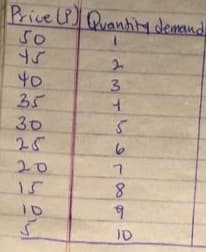 Price (P) Quantity demand
50 1
45 2
40 3
35 4
30 5
25 6
20 7
15 8
10 9
5 10